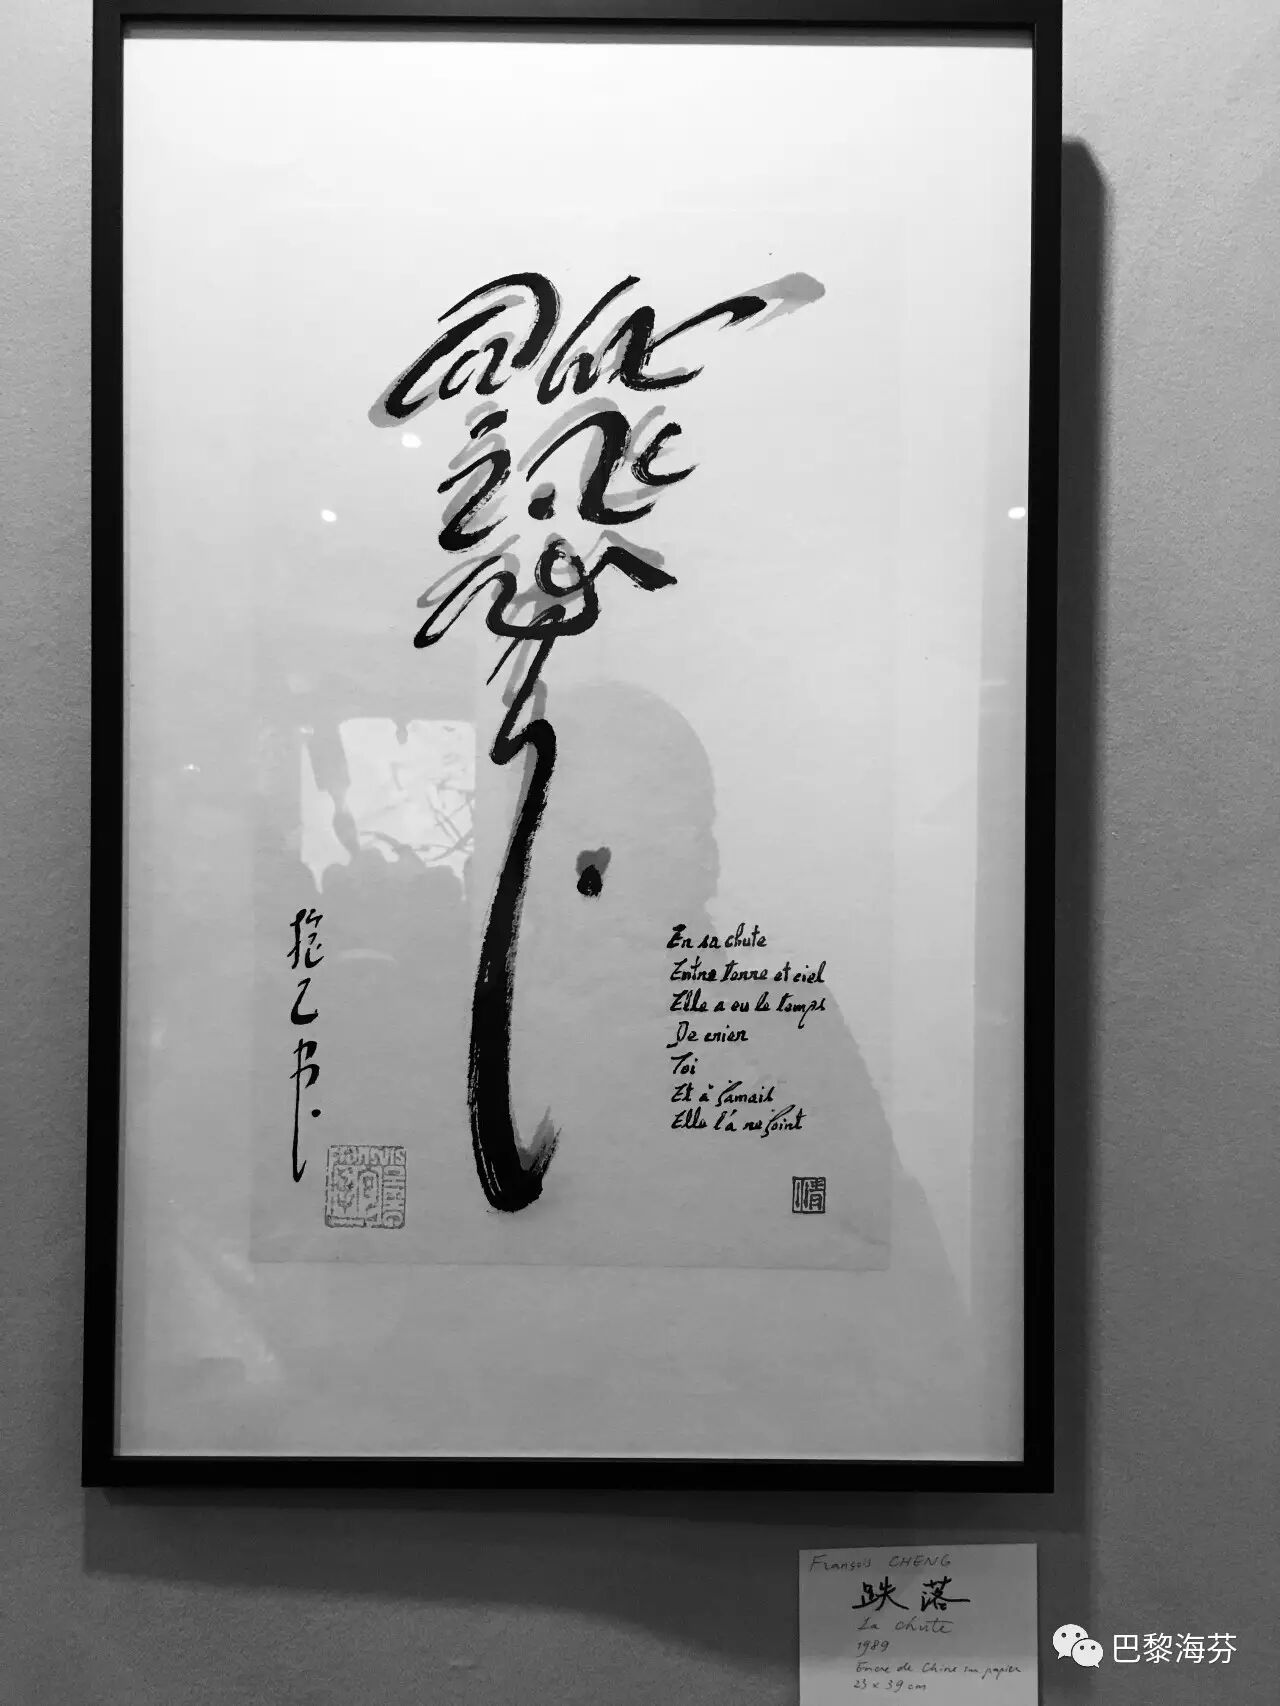 En sa chute
Entre terre et ciel
Elle a eu le temps
De crier
Toi
Et à jamais
Elle t'a rejoint
抱乙书
FRANÇOIS CHENG
情
François CHENG
跌落
La chute
1989
Encre de Chine sur papier
23 x 39 cm
巴黎海芬